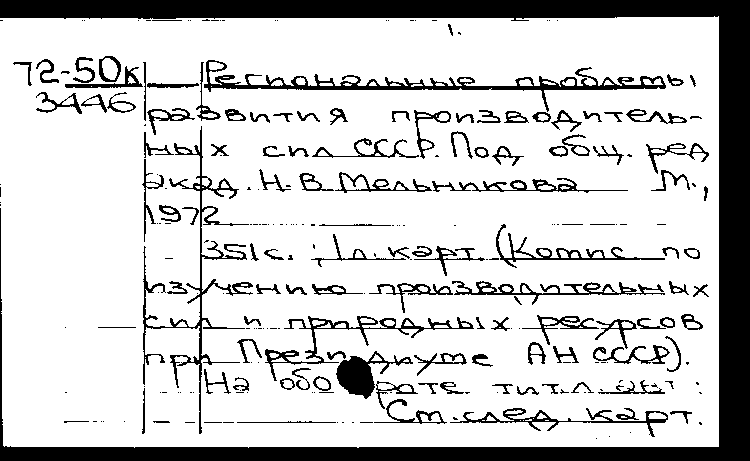 1.
72-50к Региональные проблемы
3446 развития производитель-
ных сил СССР. Под общ. ред
акад. Н.В Мельникова. М.,
1972
351с. ; 1л. карт. (Комис по
изучению производительных
сил и природных ресурсов
при Президиуме АН СССР).
На обороте тит.л. авт :
См.след. карт.